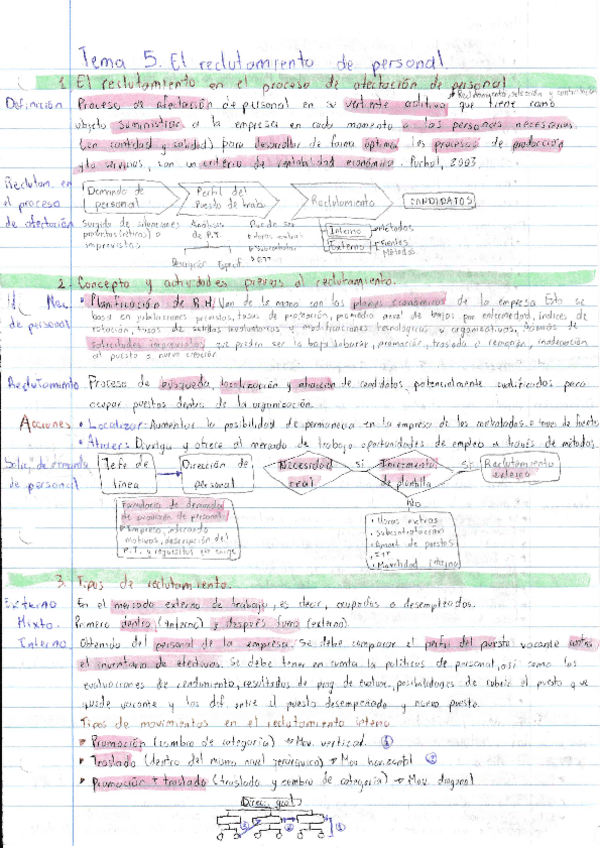 Tema 5. El reclutamiento de personal
1. El reclutamiento en el proceso de afectación de personal
Reclutamiento, selección y contratación
Definición Proceso de afectación de personal en su vertiente aditiva que tiene como
objeto suministrar a la empresa en cada momento a las personas necesarias
(en cantidad y calidad) para desarrollar de forma óptima los procesos de producción
y/o servicios, con un criterio de rentabilidad económica. Puchol, 2003
Reclutam. en el proceso de afectación
Demanda de personal
Perfil del Puesto de trab.
Reclutamiento
CANDIDATOS
Surgida de situaciones
o
imprevistas
Análisis de P.T.
Descripción Especif.
Puede ser
Interno Métodos
Externo Fuentes Métodos
2. Concepto y actividades previas al reclutamiento.
de personal
• Planificación de R.H. Van de la mano con los planes económicos de la empresa. Esto se
basa en jubilaciones previstas, tasas de promoción, promedio anual de bajas por enfermedad, índices de
rotación, tasas de salidas involuntarias y modificaciones tecnológicas u organizativas, además de
solicitudes imprevistas, que pueden ser la baja laboral, promoción, traslado o remoción, inadecuación
al puesto o nueva creación
Reclutamiento Proceso de búsqueda, localización y atracción de candidatos potencialmente cualificados para
ocupar puestos dentro de la organización.
Acciones • Localizar: Aumentar la posibilidad de permanencia en la empresa de los
• Atraer: Divulga y ofrece al mercado de trabajo oportunidades de empleo a través de métodos.
de personal
Jefe de línea
Dirección de personal
Necesidad real
SÍ
Incremento de plantilla
SÍ
Reclutamiento externo
Formulario de demanda
de personal
• Impreso, indicando
motivos, descripción del
P.T. y requisitos que exige
NO
• Horas extras
• Subcontratación
• de puestos
• ETT
• Movilidad interna
3. Tipos de reclutamiento.
Externo En el mercado externo de trabajo, es decir, ocupados o desempleados.
Mixto. Primero dentro (interno) y después fuera (externo).
Interno Obtenido del personal de la empresa. Se debe comparar el perfil del puesto vacante contra
el inventario de efectivos. Se debe tener en cuenta la política de personal, así como las
evaluaciones de rendimiento, resultados de prog. de evaluac., posibilidades de cubrir el puesto que
quede vacante y las dif. entre el puesto desempeñado y nuevo puesto.
Tipos de movimientos en el reclutamiento interno
Promoción (cambio de categoría) → Mov. vertical. ①
Traslado (dentro del mismo nivel jerárquico) → Mov. horizontal ②
Promoción + traslado (traslado y cambio de categoría) → Mov. diagonal
Direc. gral.
③ ② ①